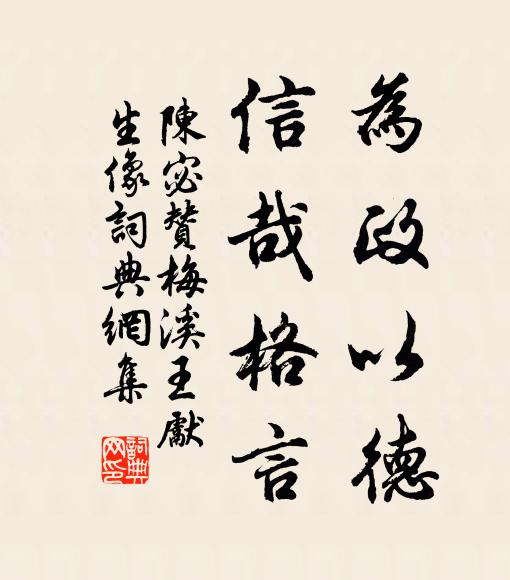 為政以德
信哉格言
陳宓贊梅溪王獻
生像詞典網集
詞典
网印